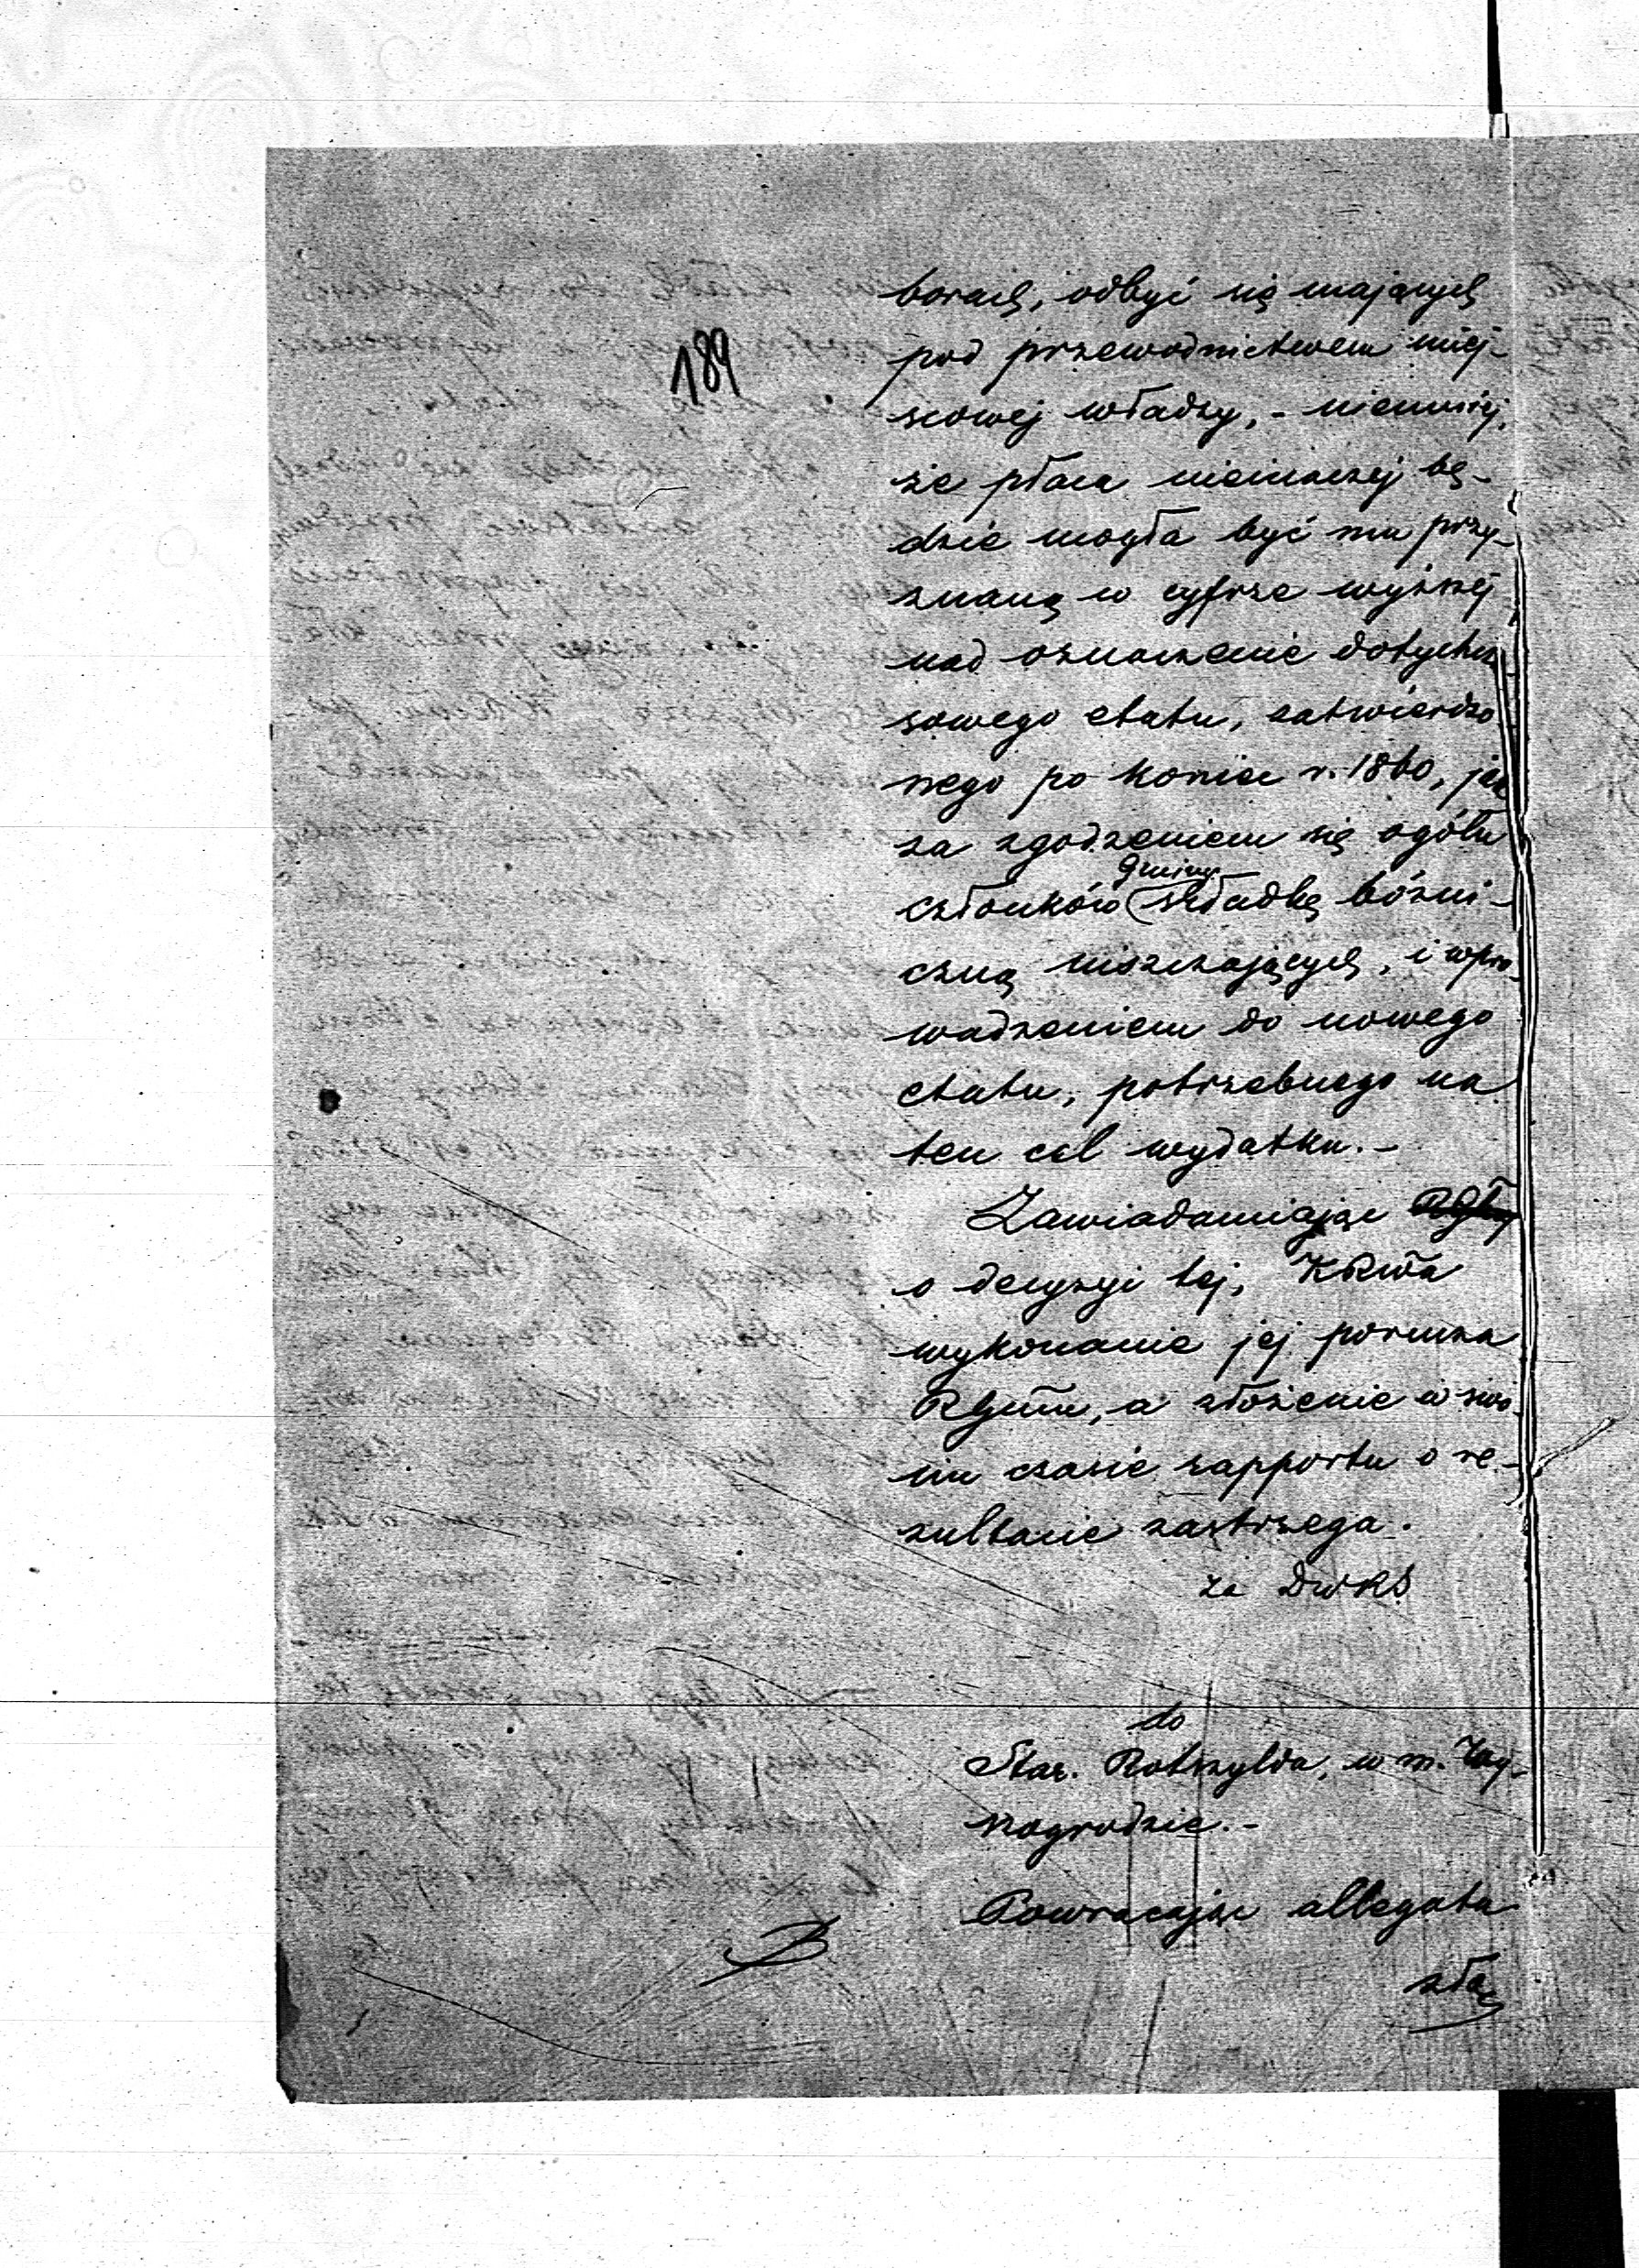 189
borach, odbyć się mających
pod przewodnictwem miej-
scowej władzy, - niemniej,
że płaca nieinaczej bę-
dzie mogła być mu przy-
znaną w cyfrze wyższej
nad oznaczenie dotychcza
sowego etatu, zatwierdzo
nego po koniec r. 1860, jak
za zgodzeniem się ogółu
gminy
członków (składkę bóżni-
czną uiszczających, i wpro-
wadzeniem do nowego
etatu, potrzebnego na
ten cel wydatku. -
Zawiadamiając
o decyzyi tej, KRwa
wykonanie jej porucza
RGłnu, a złożenie w swo-
im czasie rapportu o re-
zultacie zastrzega.
za DWKS
do
Star. Rotszylda, w m. Wy-
szogrodzie. -
Powracając allegata